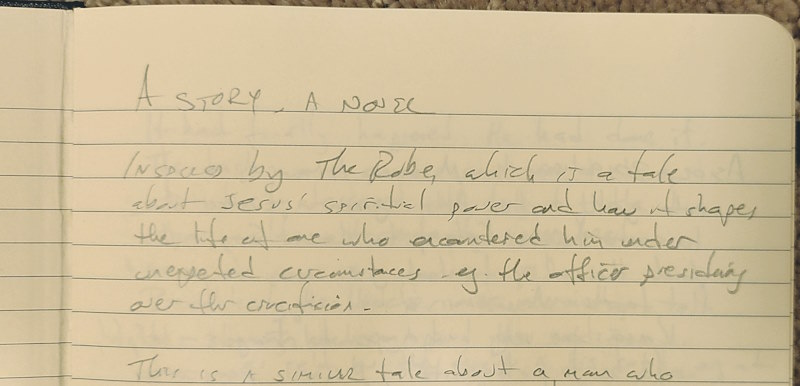 A STORY. A NOVEL
Inspired by The Robe, which is a tale
about Jesus' spiritual power and how it shapes
the life of one who encountered him under
unexpected circumstances e.g. the officer presiding
over the crucifixion.
This is a similar tale about a man who